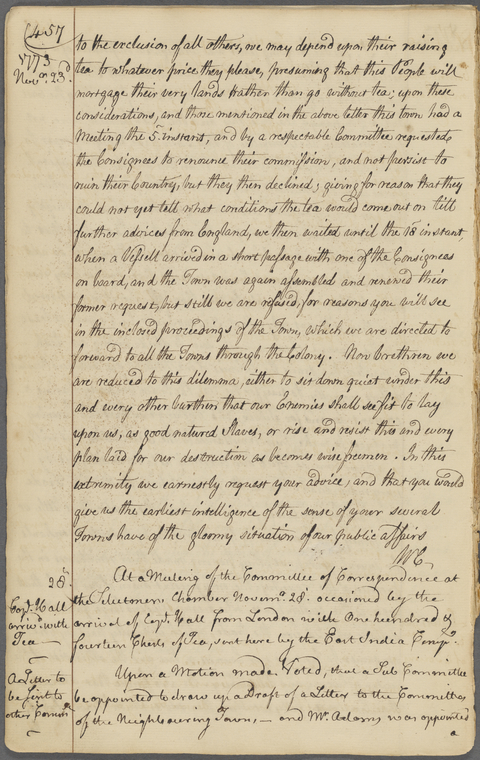 457
1773
Novr. 23d.
to the exclusion of all others, we may depend upon their raising
tea to whatever price they please, presuming that this People will
mortgage their very lands rather than go without tea; upon these
considerations, and those mentioned in the above letter this town had a
Meeting the 5th instant, and by a respectable Committee requested
the Consignees to renounce their commission, and not persist to
ruin their Country, but they then declined; giving for reason that they
could not yet tell what conditions the tea would come out on till
further advices from England, we then waited until the 18 instant
when a Vessell arrived in a short passage with one of the Consigneas
on board, and the Town was again assembled and renewed their
former request, but still we are refused, for reasons you will see
in the inclosed proceedings of the Town, which we are directed to
forward to all the Towns through the Colony. Now brethren we
are reduced to this dilemma, either to sit down quiet under this
and every other burthen that our Enemies shall see fit to lay
upon us, as good natured Slaves, or rise and resist this and every
plan laid for our destruction as becomes wise freemen. In this
extremity we earnestly request your advice, and that you would
give us the earliest intelligence of the sense of your several
Towns have of the gloomy situation of our public affairs
WC
28th.
Capt. Hall
arriv'd with
Tea
At a Meeting of the Committee of Correspondence at
the Selectmens Chamber Novemr. 28. occasioned by the
arrival of Capt. Hall from London with One hundred &
fourteen Chests of Tea, sent here by the East India Compy.
A Letter to
be sent to
other Commee
Upon a Motion made Voted, that a Sub Committee
be appointed to draw up a Draft of a Letter to the Committees
of the Neighbouring Towns, — and Mr. Adams was appointed
a